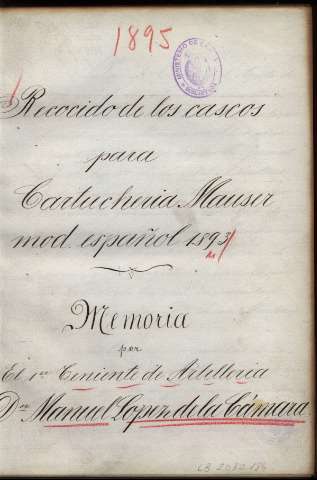 1895
MINISTERIO DE
Recocido de los cascos
para
Cartucheria Mauser
mod. español 1893
Memoria
por
El 1er Teniente de Artilleria
Dn Manuel Lopez de la Cámara